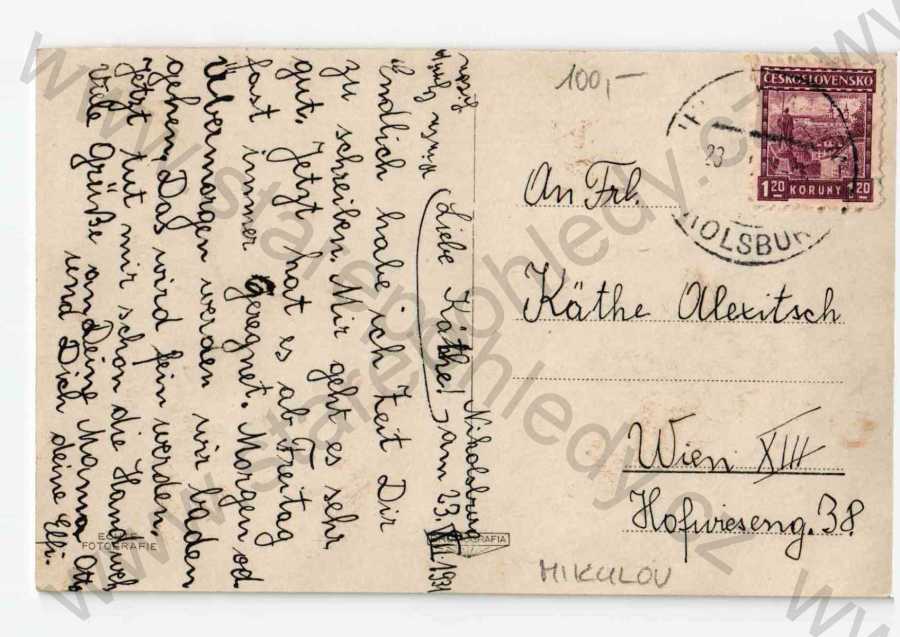 Nikolsburg
am 23. VII. 1931
Liebe Käthe!
Endlich habe ich Zeit Dir
zu schreiben. Mir geht es sehr
gut. Jetzt hat es ab Freitag
fast immer geregnet. Morgen od.
Übermorgen werden wir baden
gehen. Das wird fein werden.
Jetzt tut mir schon die Hand weh
Viele Grüße an Deine Mama Otto
und Dich deine Elfi.
100,-
ČESKOSLOVENSKO
1.20 KORUNY 1.20
23
OLSBUR
An Frl.
Käthe Alexitsch
Wien XIII
Hofwieseng. 38
FOTOGRAFIE
MIKULOV
www.starepohledy.cz